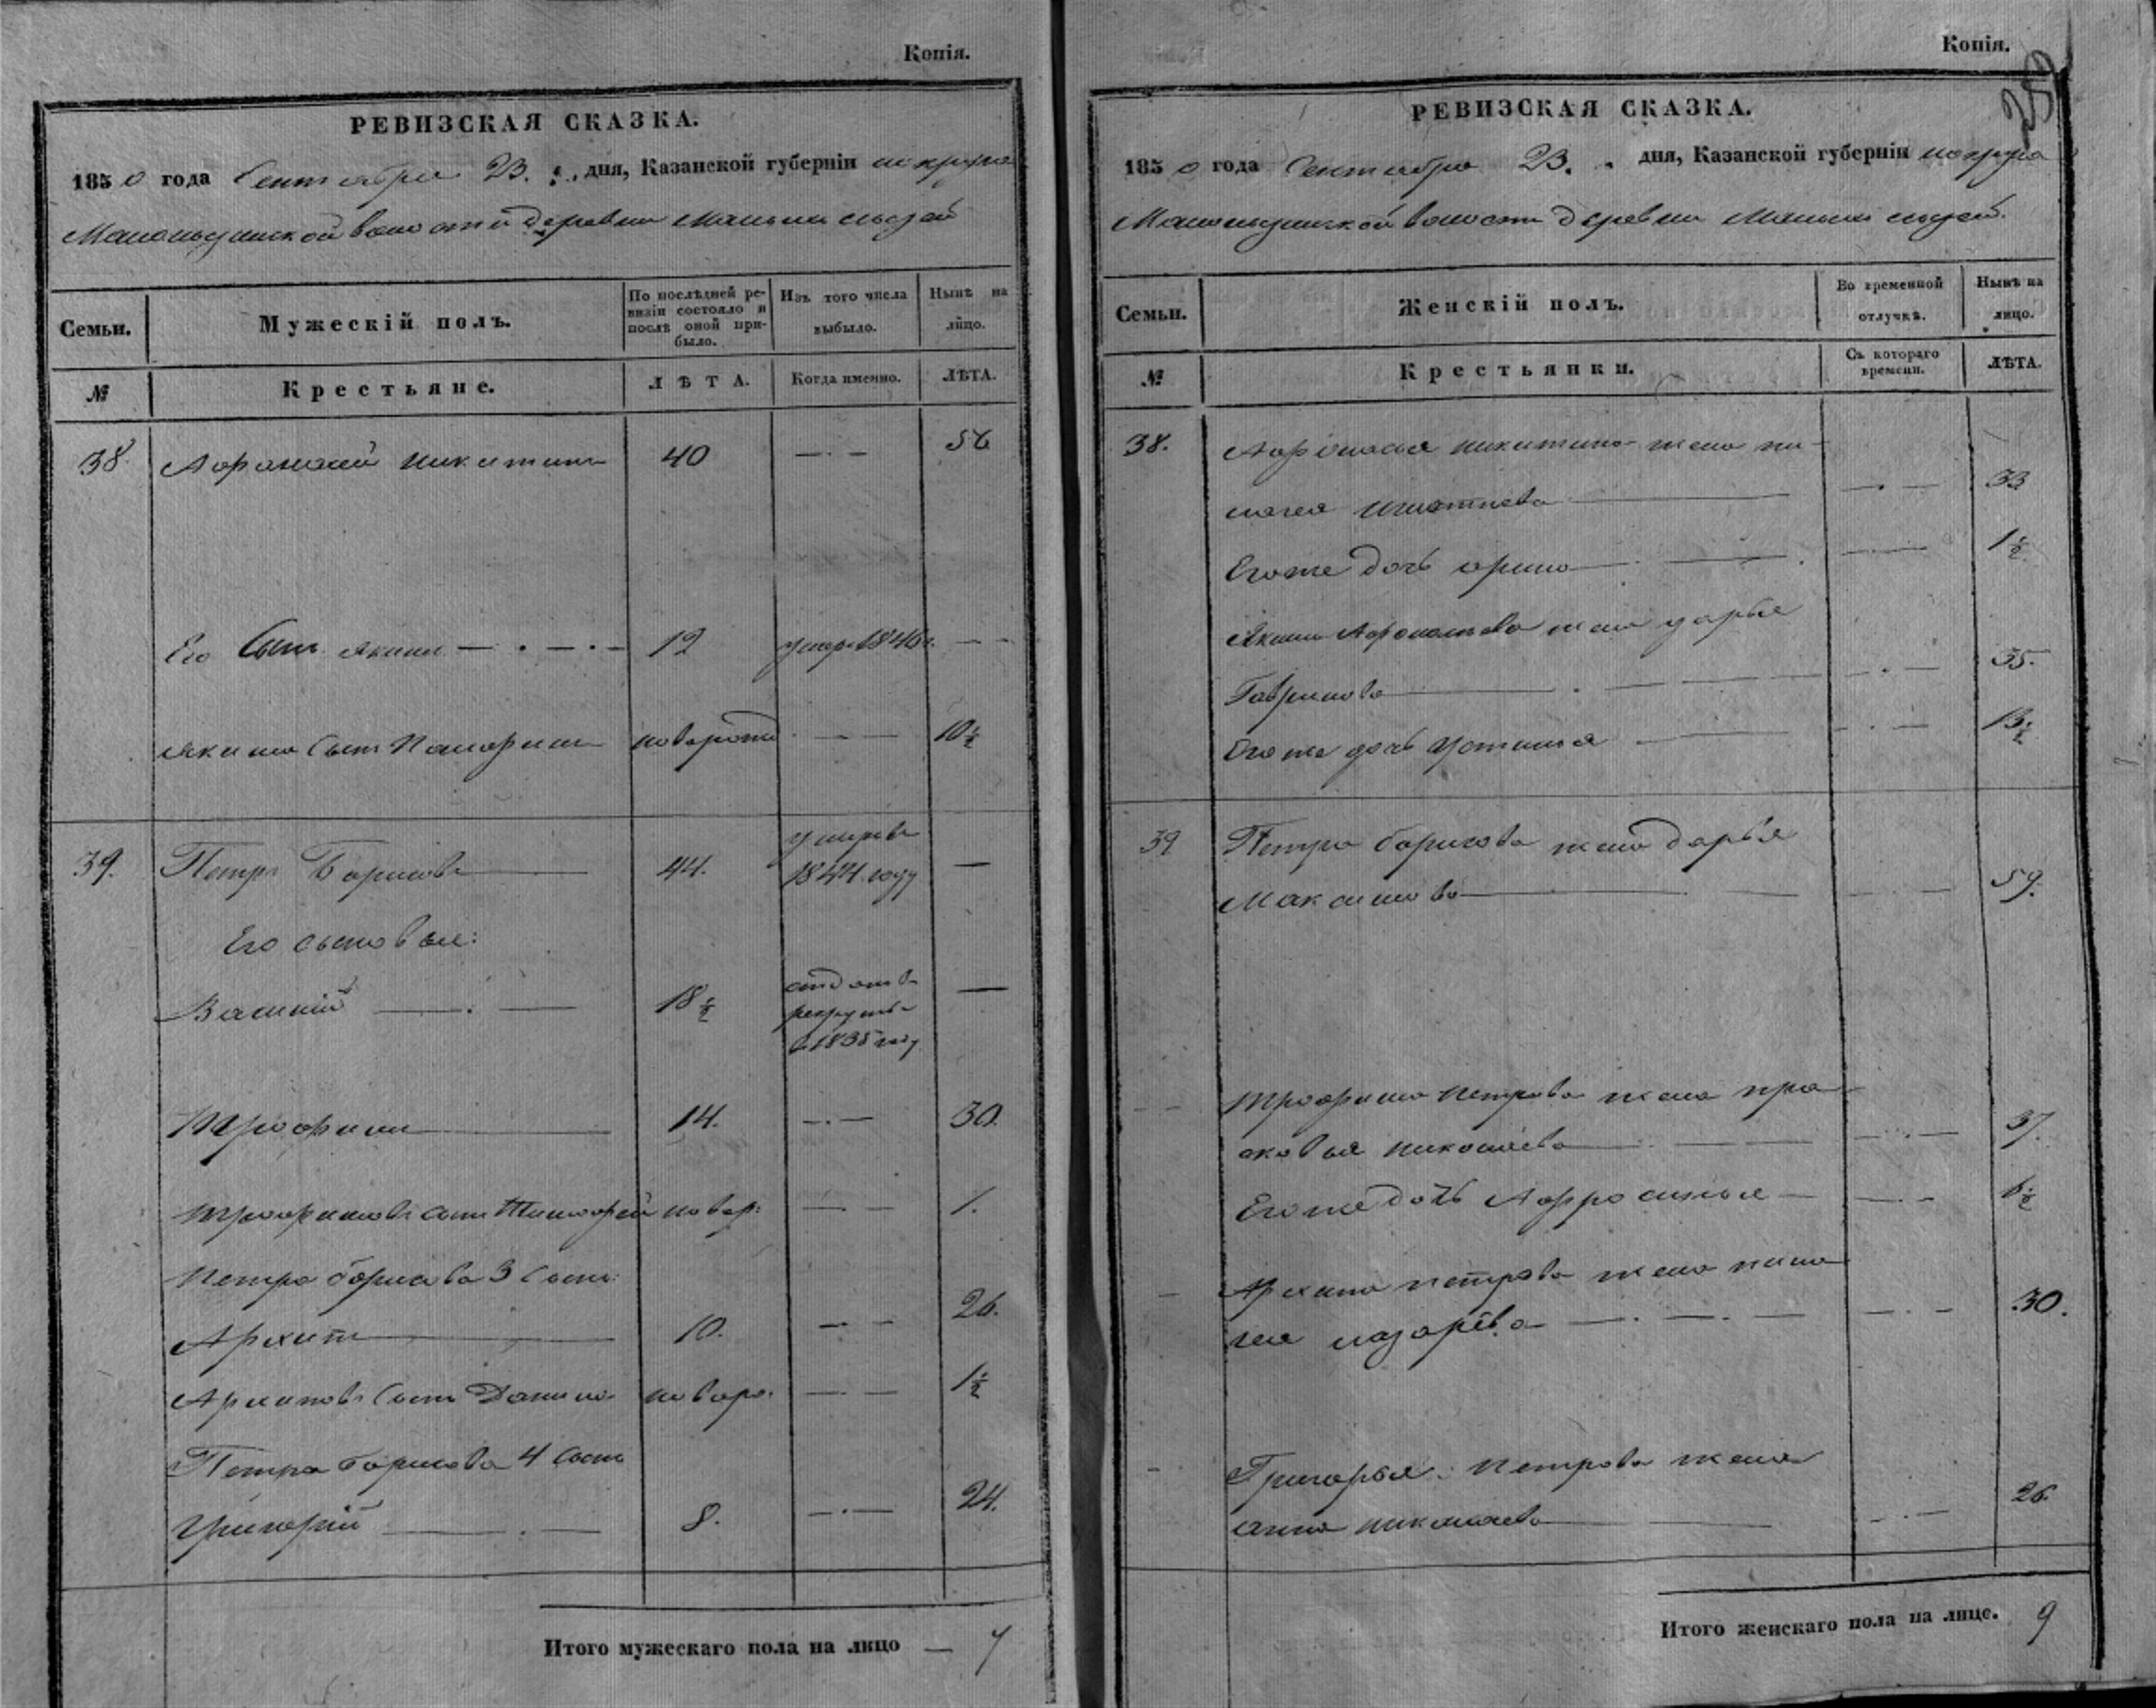 Копія.
РЕВИЗСКАЯ СКАЗКА.
1850 года Сентября 23. дня, Казанской губерніи
волости деревни
Семьи.
Мужескій полъ.
По послѣдней ревизіи состояло и послѣ оной прибыло.
Изъ того числа выбыло.
Нынѣ на лицо.
№
Крестьяне.
ЛѢТА.
Когда именно.
ЛѢТА.
38 Никитинъ 40 56
Его сынъ Якимъ 12 умеръ 1846
Якима сынъ новорож 10½
39. Петръ Борисовъ 44. умеръ въ 1844 году
Его сыновья:
Василій 18½ отданъ въ рекруты въ 1835 году
Трофимъ 14. 30.
Трофимовъ сынъ Тимофей новор: 1.
Петра Борисова 3 сынъ:
Архипъ 10. 26.
Архиповъ сынъ Данило новоро. 1½
Петра Борисова 4 сынъ
Григорій 8. 24.
Итого мужескаго пола на лицо — 7
Копія.
РЕВИЗСКАЯ СКАЗКА.
1850 года Сентября 23. дня, Казанской губерніи
волости деревни
Семьи.
Женскій полъ.
Во временной отлучкѣ.
Нынѣ на лицо.
№
Крестьянки.
Съ котораго времени.
ЛѢТА.
38. Никитина жена пи-
лагея Игнатьева 33
Егоже дочь Ирина 1½
Якима жена Дарья
Гаврилова 35.
Егоже дочь Устинья 13½
39 Петра Борисова жена Дарья
Максимова 59.
Трофима Петрова жена Пра
сковья Николаева 37.
Егоже дочь 6½
Архипа Петрова жена пила
гея Лазарева 30.
Григорья Петрова жена
Анна Николаева 26.
Итого женскаго пола на лице. 9